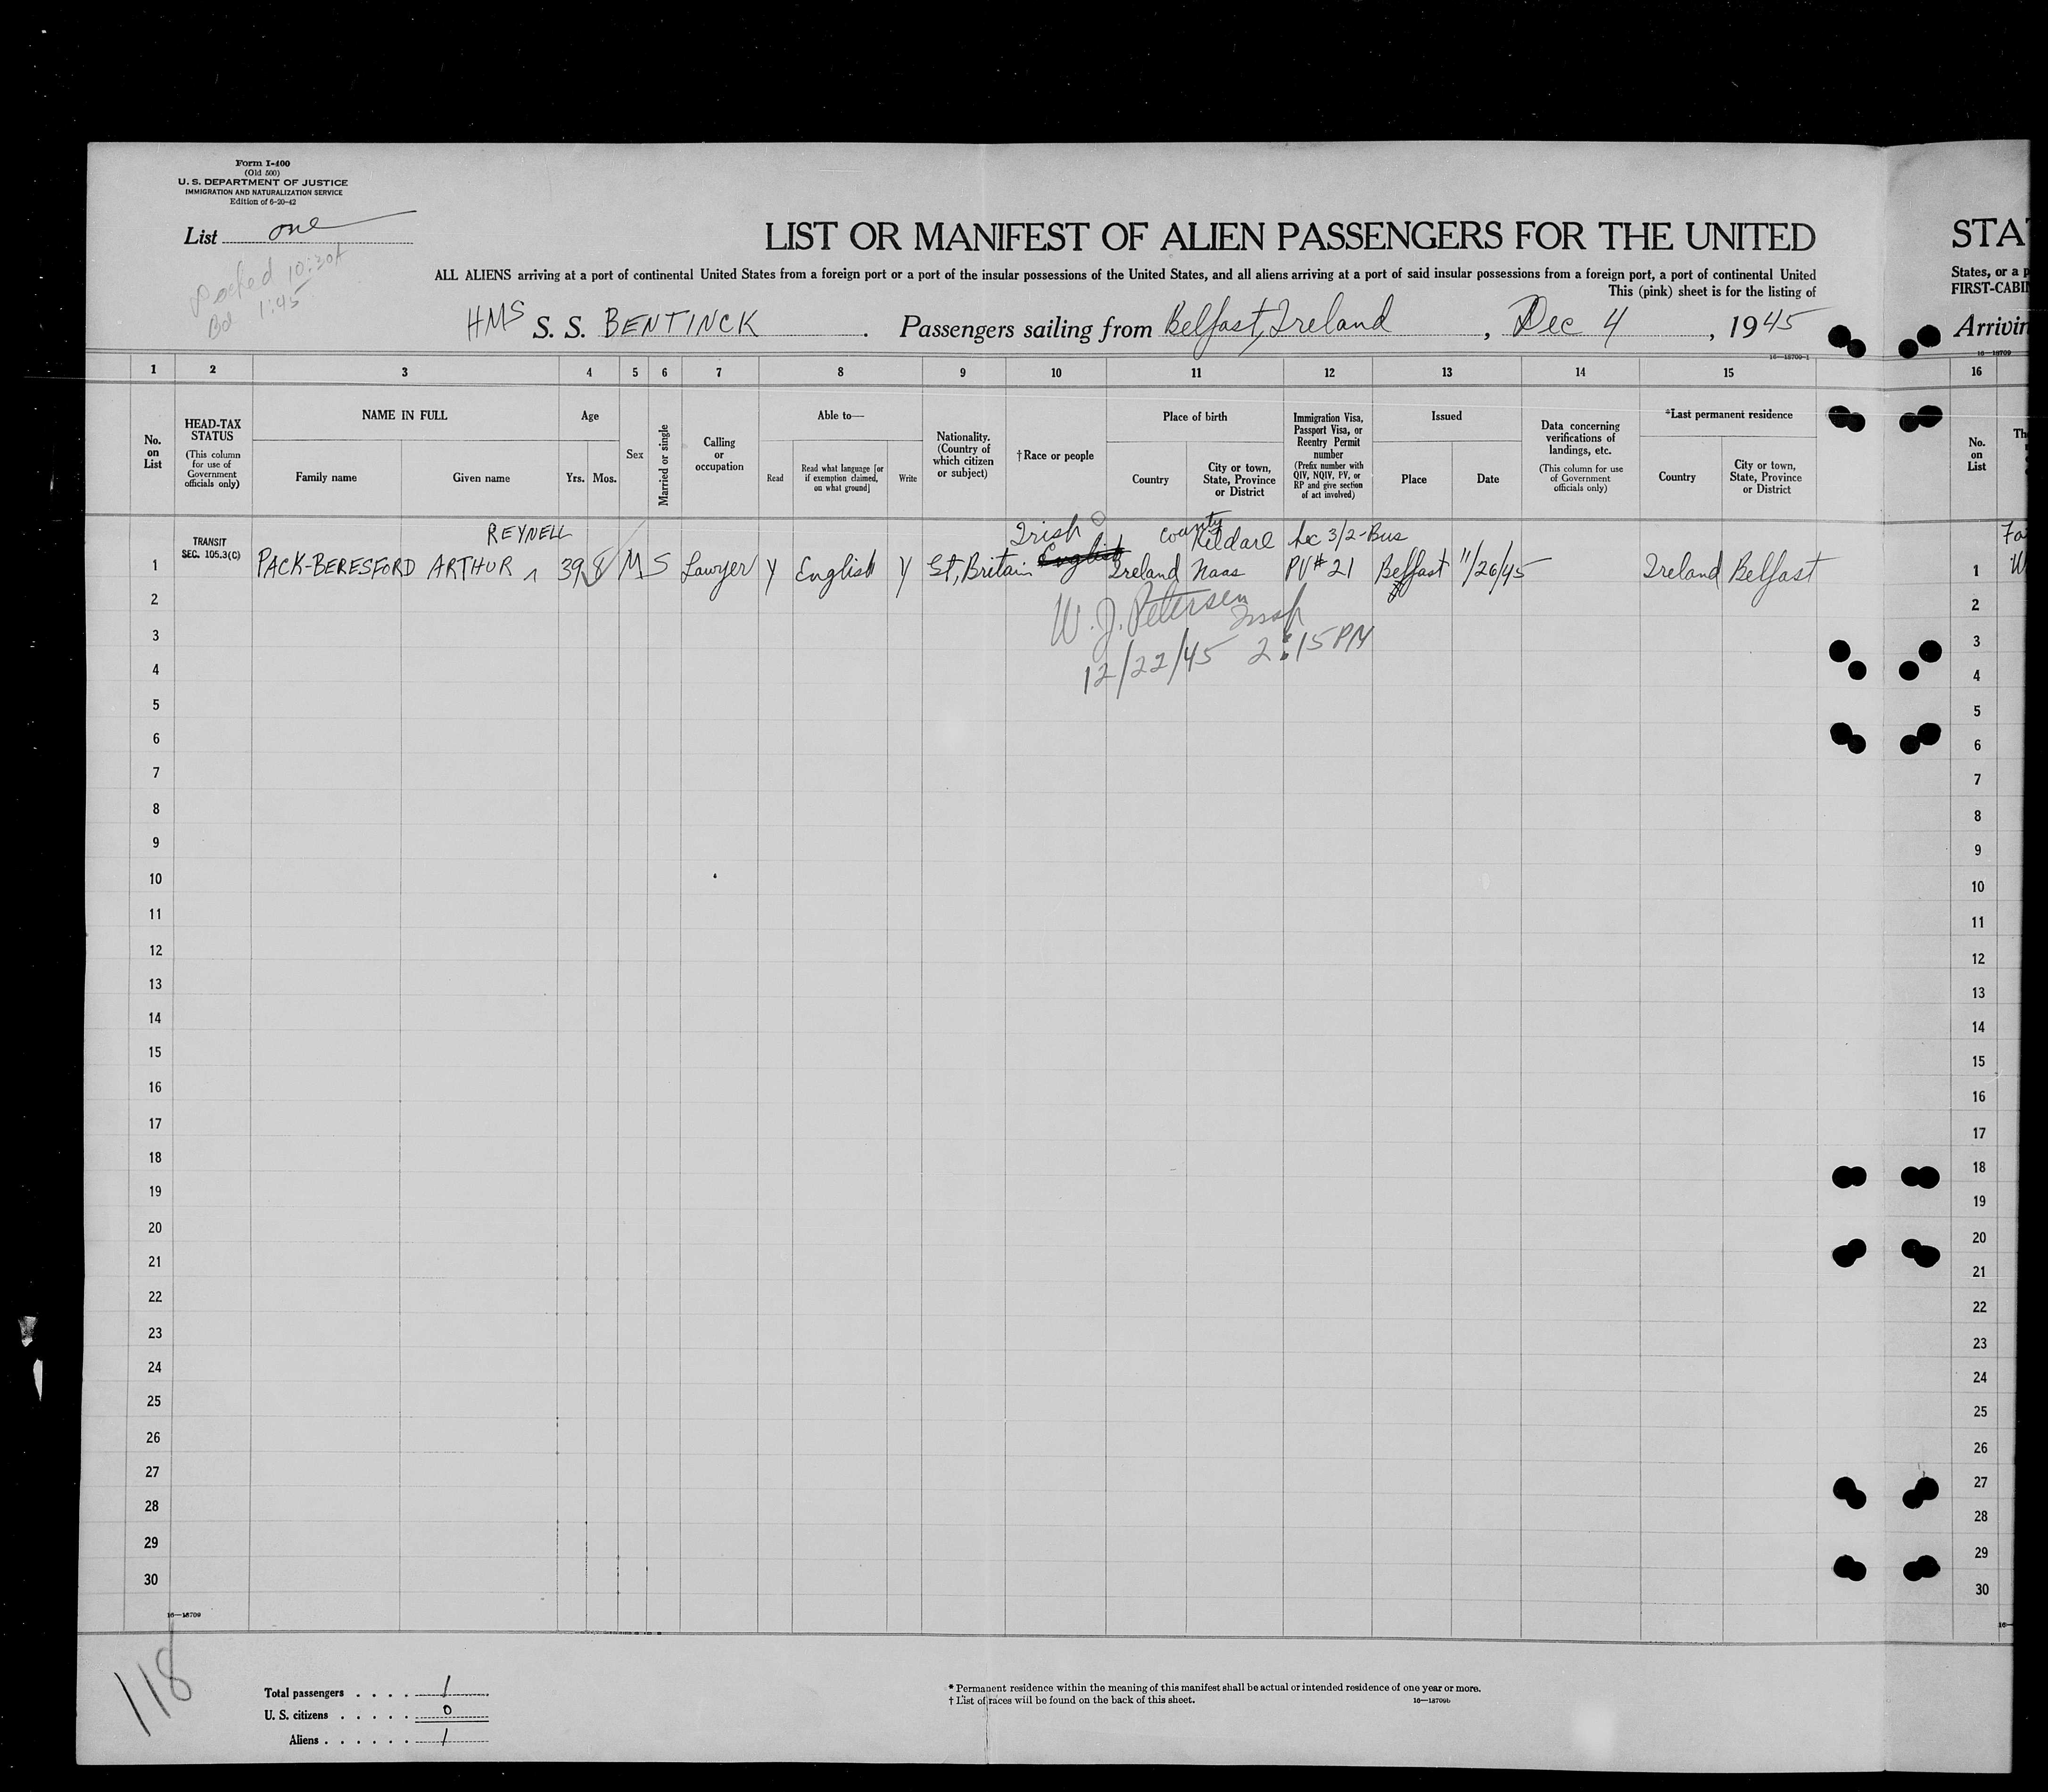 Form I-400
(Old 500)
U. S. DEPARTMENT OF JUSTICE
IMMIGRATION AND NATURALIZATION SERVICE
Edition of 6-20-42
List one
Docked 10:30A
Bd 1:45
LIST OR MANIFEST OF ALIEN PASSENGERS FOR THE UNITED
STA
ALL ALIENS arriving at a port of continental United States from a foreign port or a port of the insular possessions of the United States, and all aliens arriving at a port of said insular possessions from a foreign port, a port of continental United
States, or a p
This (pink) sheet is for the listing of
FIRST-CABI
HMS S. S. BENTINCK. Passengers sailing from Belfast, Ireland, Dec 4, 1945
Arrivin
16—18709-1
16—18709
1 2 3 4 5 6 7 8 9 10 11 12 13 14 15 16
No. on List
HEAD-TAX STATUS
(This column for use of Government officials only)
NAME IN FULL
Family name
Given name
Age
Yrs. Mos.
Sex
Married or single
Calling or occupation
Able to—
Read
Read what language [or if exemption claimed, on what ground]
Write
Nationality. (Country of which citizen or subject)
†Race or people
Place of birth
Country
City or town, State, Province or District
Immigration Visa, Passport Visa, or Reentry Permit number
(Prefix number with QIV, NQIV, PV, or RP and give section of act involved)
Issued
Place
Date
Data concerning verifications of landings, etc.
(This column for use of Government officials only)
*Last permanent residence
Country
City or town, State, Province or District
No. on List
Th
TRANSIT
SEC. 105.3(C)
REYNELL
Irish
County Kildare
Sec 3/2-Bus
Fa
1 PACK-BERESFORD ARTHUR 39 8 M S Lawyer Y English Y Gt. Britain English Ireland Naas PV# 21 Belfast 11/26/45 Ireland Belfast 1 W
W. J. Petersen
Insp
12/22/45 2:15 PM
2 2
3 3
4 4
5 5
6 6
7 7
8 8
9 9
10 10
11 11
12 12
13 13
14 14
15 15
16 16
17 17
18 18
19 19
20 20
21 21
22 22
23 23
24 24
25 25
26 26
27 27
28 28
29 29
30 30
16—18709
16—
118
Total passengers . . . . 1
U. S. citizens . . . . . 0
Aliens . . . . . . 1
* Permanent residence within the meaning of this manifest shall be actual or intended residence of one year or more.
† List of races will be found on the back of this sheet.
16—18709b